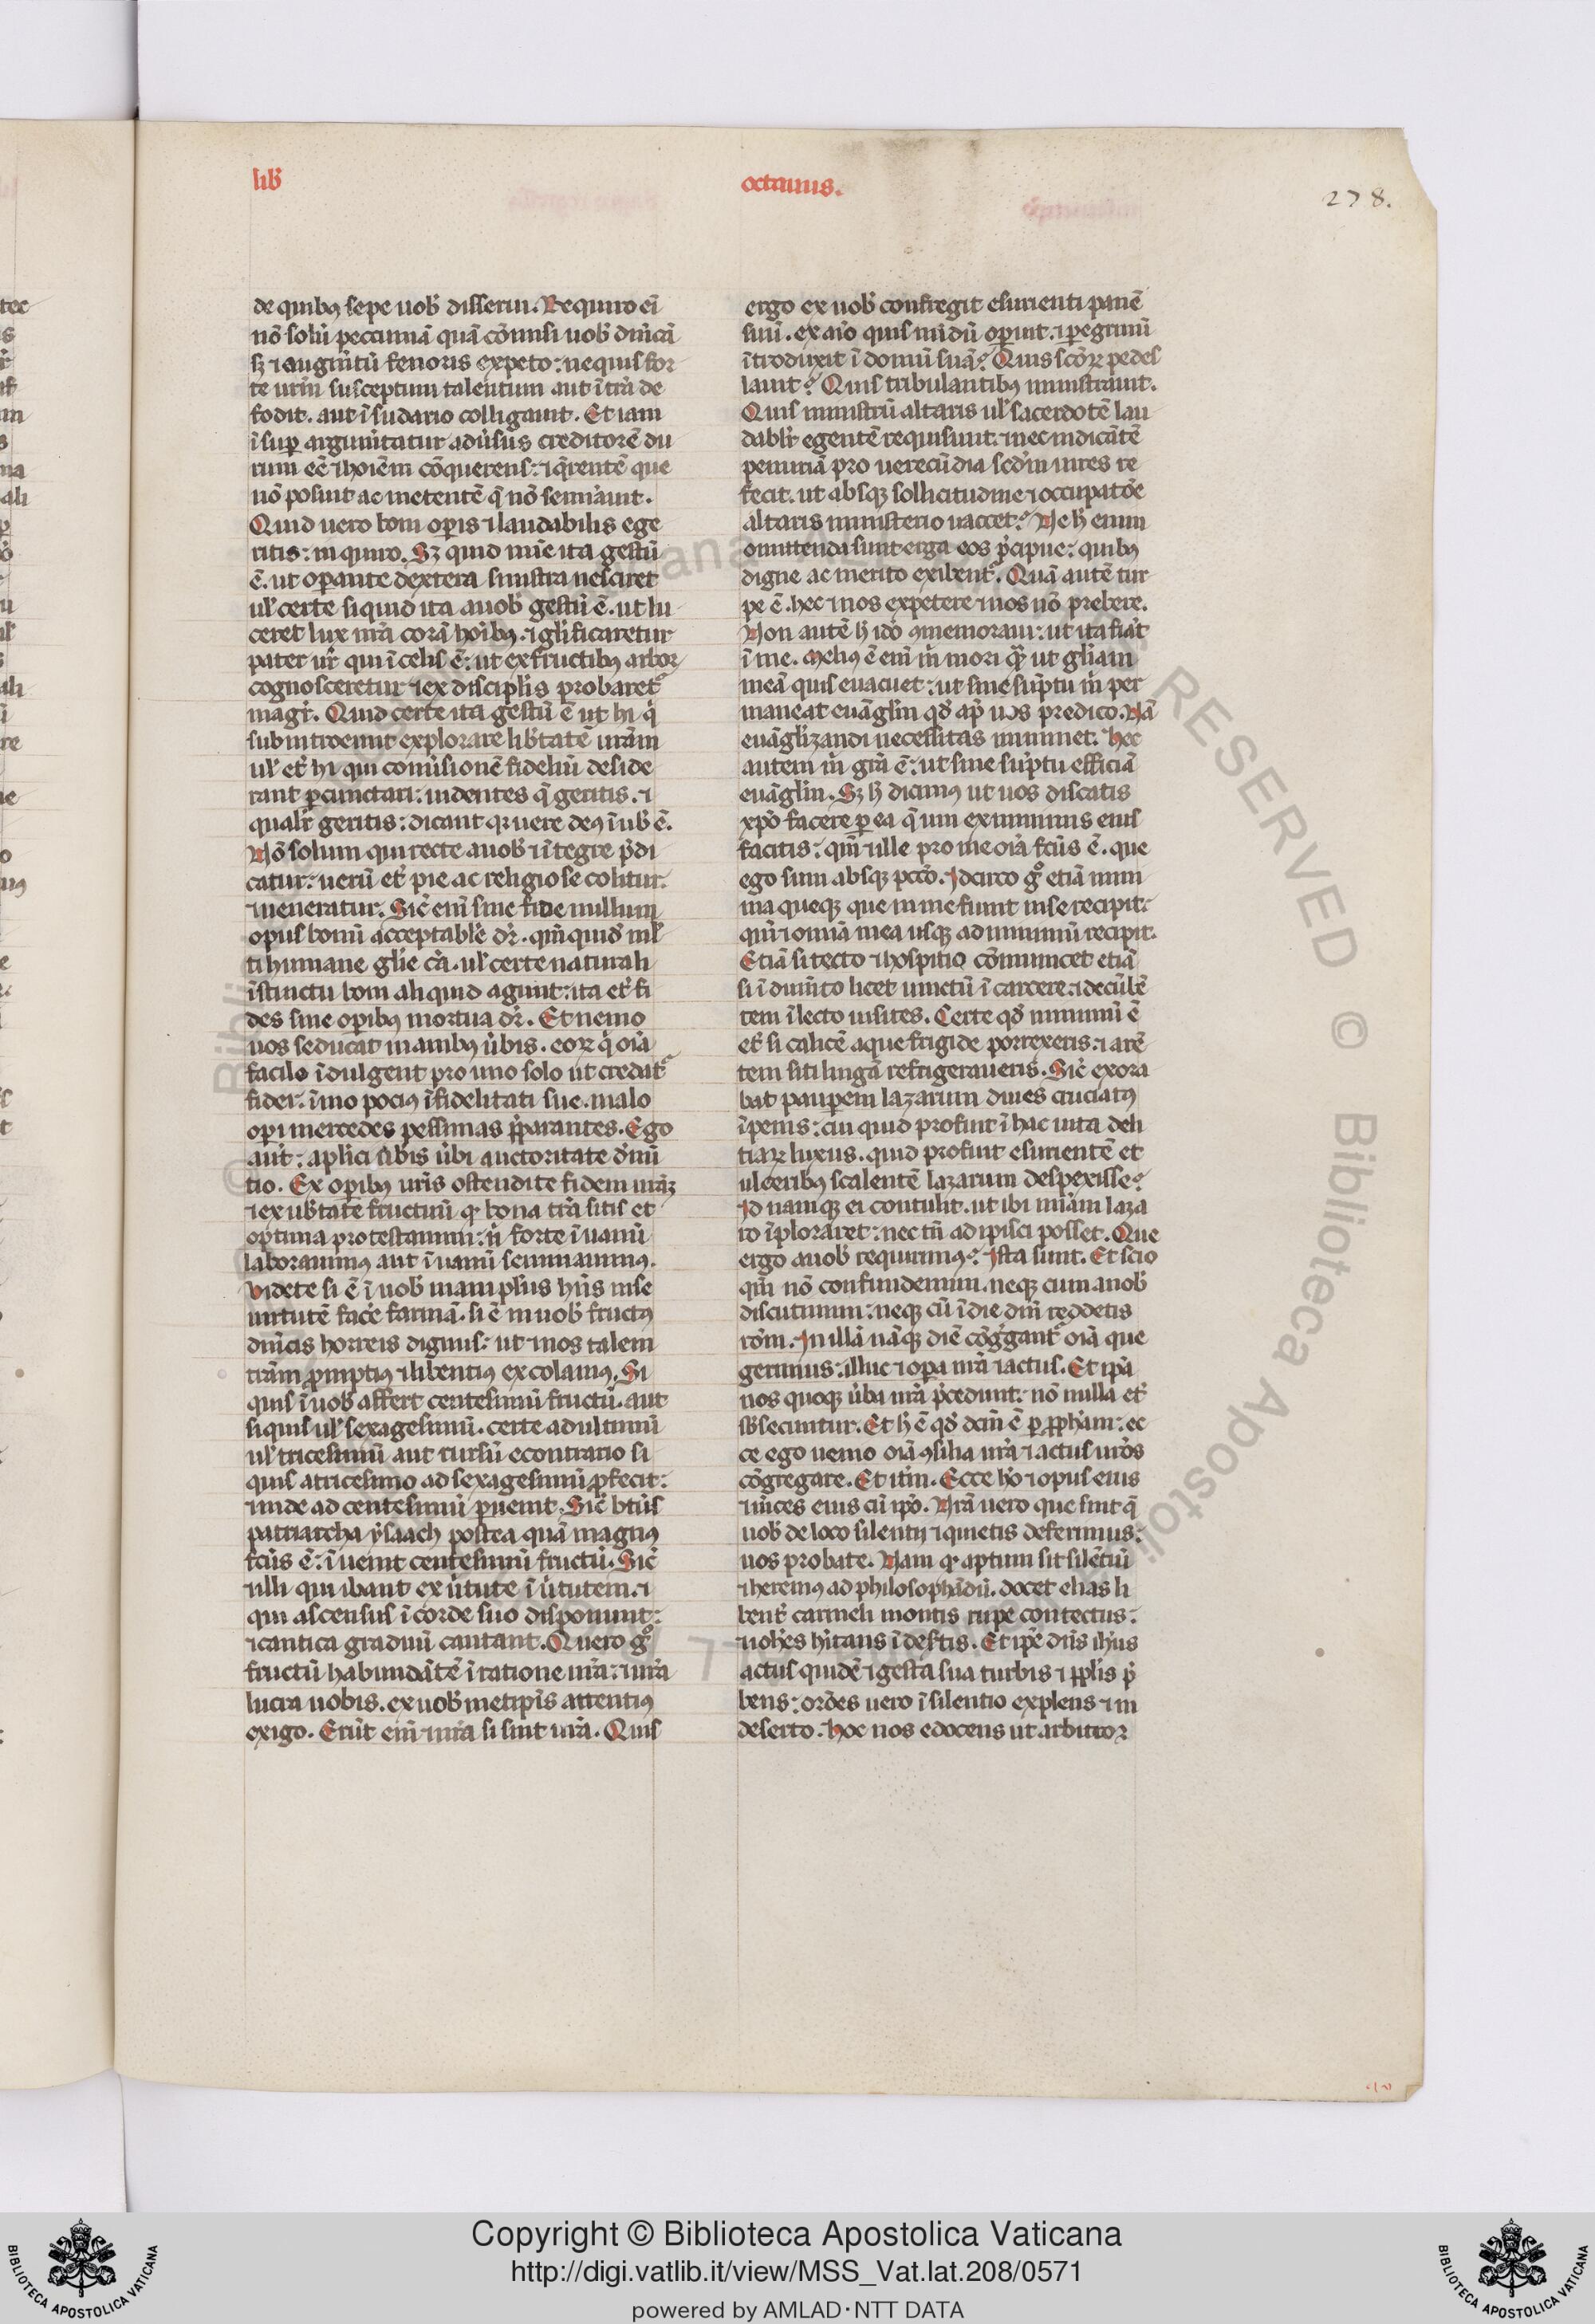 lib̄
octauus.
278.
de quibꝰ sepe uob̄ disserui. Requiro eī
nō solū pecuniā quā cōmisi uob̄ dn̄icā
sꝫ ⁊ augm̄tū fenoris expeto: ne quis for
te ur̄m susceptum talentum aut ī tr̄a de
fodit. aut ī sudario colligauit. Et iam
īsuꝑ argumītatur adūsus creditorē du
rum eē ⁊ hoīem cōquerens: ⁊ q̄rentē que
nō posuit ac metentē q̄ nō semīauit.
Quid uero boni oꝑis ⁊ laudabilis ege
ritis: inquiro. Sꝫ quid
ē. ut oꝑante dextera sinistra nesciret
ul̄ certe si quid ita a uob̄ gestū ē. ut lu
ceret lux ur̄a corā hoībꝰ. ⁊ gl̄ificaretur
pater ur̄ qui ī celis ē: ut ex fructibꝰ arbor
cognosceretur ⁊ ex discipl̄is probaret᷑
magr̄. Quid certe ita gestū ē ut hi q̄
subintroeunt explorare lib̄tatē ur̄am
ul̄ et̄ hi qui comīsionē fideliū deside
rant ꝑcunctari: uidentes q̄ geritis. ⁊
qualr̄ geritis: dicant qꝛ uere deꝰ ī uob̄ ē.
Nō solum qui recte a uob̄ ⁊ ītegre p̄di
catur: uerū et̄ pie ac religiose colitur.
⁊ ueneratur. Sic̄ enī sine fide nullum
opus bonū acceptabile dr̄. qm̄ quid̄ ml̄
ti humane gl̄ie cā. ul̄ certe naturali
īstinctu boni aliquid agunt: ita et̄ fi
des sine oꝑibꝰ mortua dr̄. Et nemo
uos seducat inanibꝰ ūbis. eoꝝ q̄ oīa
facilo īdulgent pro uno solo ut credat᷑
fider. īmo pociꝰ īfidelitati sue. malo
opi mercedes pessimas p̄parantes. Ego
aut̄: apl̄ici ūbis ūbi auctoritate d̄nū
tio. Ex oꝑibꝰ ur̄is ostendite fidem ur̄aꝫ
⁊ ex ub̄tate fructuū qꝛ bona tr̄a sitis et
optima protestamini: n̄ forte ī uanū
laborauimꝰ aut ī uanū seminauimꝰ.
Videte si ē ī uob̄ manipl̄us hn̄s in se
uirtutē facē farinā. si ē in uob̄ fructꝰ
dn̄icis horreis dignus: ut ⁊ nos talem
trām ꝓmptiꝰ ⁊ libentiꝰ excolamꝰ. Si
quis ī uob̄ affert centesimū fructū. aut
si quis ul̄ sexagesimū. certe ad ultimū
ul̄ tricesimū aut rursū econtrario si
quis a tricesimo ad sexagesimū ꝓfecit:
⁊ inde ad centesimū ꝑuenit. Sic̄ bt̄us
patriarcha ysaach postea quā magnꝰ
fc̄us ē: īuenit centesimū fructū. Sic̄
⁊ illi qui ibant ex ūtute ī ūtutem. ⁊
qui ascensus ī corde suo disponunt:
⁊ cantica graduū cantant. Quero gͦ
fructū habundātē ī ratione ur̄a: ⁊ ur̄a
lucra uobis. ex uob̄ metipīs attentiꝰ
exigo. Erūt enī ⁊ ur̄a si sint ur̄a. Quis
ergo ex uob̄ confregit esurienti panē
suū. ex aīo quis nūdū oꝑuit. ⁊ ꝑegrinū
ītroduxit ī domū suā? Quis sc̄oꝝ pedes
lauit? Quis tribulantibꝰ ministrauit.
Quis ministrū altaris ul̄ sacerdotē lau
dabl̄r egentē requisiuit: ⁊ nec indicātē
penuriā pro uerecūdia sed̄m uires re
fecit. ut absqꝫ sollicitudine ⁊ occupatōe
altaris ministerio uaccet? Ne h̄ enim
omittenda sunt erga eos p̄cipue: quibꝰ
digne ac merito exibent᷑. Quā autē tur
pe ē. hec ⁊ nos expetere ⁊ uos nō prebere.
Non autē h̄ idō ꝯmemoraui: ut ita fiāt
ī me. Meliꝰ ē enī m̄ mori qꝫ̄ ut gl̄iam
meā quis euacuet: ut sine sūptu m̄ per
maneat euāgl̄m qd̄ ap̄ uos predico. Nā
euāgl̄izandi necessitas īminet. hec
autem m̄ gr̄a ē: ut sine sūptu efficiā
euāgl̄m. Sꝫ h̄ dicimꝰ ut uos discatis
xpō facere ꝑ ea q̄ uni ex minimis eius
facitis: qm̄ ⁊ ille pro me oīa fc̄us ē. que
ego sum absqꝫ pctō. Idcirco gͦ etiā mini
ma queqꝫ que in me fiunt in se recipit:
qm̄ ⁊ omnia mea usqꝫ ad minimū recipit.
Etiā si tecto ⁊ hospitio cōmunicet etiā
si ī dumīto licet uinctū ī carcere. ⁊ decūbē
tem ī lecto uisites. Certe qd̄ minimū ē
et̄ si calicē aque frigide porrexeris. ⁊ arē
tem siti linguā refrigeraueris. Sic̄ exora
bat pauꝑem lazarum diues cruciatꝰ
īpenis: cui quid profuit ī hac uita deli
tiaꝝ luxus. quid profuit esurientē et
ulceribꝰ scalentē lazarum despexisse?
Id namqꝫ ei contulit. ut ibi mīam laza
ro īploraret: nec tn̄ adipisci posset. Que
ergo a uob̄ requirimꝰ? Ista sunt. Et scio
qm̄ nō confundemini. neqꝫ cum a uob̄
discutimini: neqꝫ cū ī die dn̄i reddetis
rōm. In illā nāqꝫ diē cōḡgant᷑ oīa que
gerimus: illuc ⁊ oꝑa nr̄a ⁊ actus. Et ip̄a
nos quoqꝫ ūba nr̄a p̄cedunt: nō nulla et̄
sb̄secuntur. Et h̄ ē qd̄ dcm̄ ē ꝑ ꝓph̄am: ec
ce ego uenio oīa ꝯsilia ur̄a ⁊ actus ur̄os
cōgregare. Et it̄m. Ecce hō ⁊ opus eius
⁊ uīces eius cū ip̄o. Nr̄a uero que sint q̄
uob̄ de loco silentij ⁊ quietis deferimus:
uos probate. Nam qꝛ aptum sit silētiū
⁊ heremꝰ ad philosophādū. docet elias li
bent̄ carmeli montis rupe contectus:
⁊ ioh̄es hītans ī desertis. Et ip̄e dn̄s ih̄us
actus quidē ⁊ gesta sua turbis ⁊ ꝓpl̄is p̄
bens: or̄des uero ī silentio explens ⁊ in
deserto. Hoc nos edocens ut arbitror
Copyright © Biblioteca Apostolica Vaticana
http://digi.vatlib.it/view/MSS_Vat.lat.208/0571
powered by AMLAD·NTT DATA
BIBLIOTECA APOSTOLICA VATICANA
BIBLIOTECA APOSTOLICA VATICANA